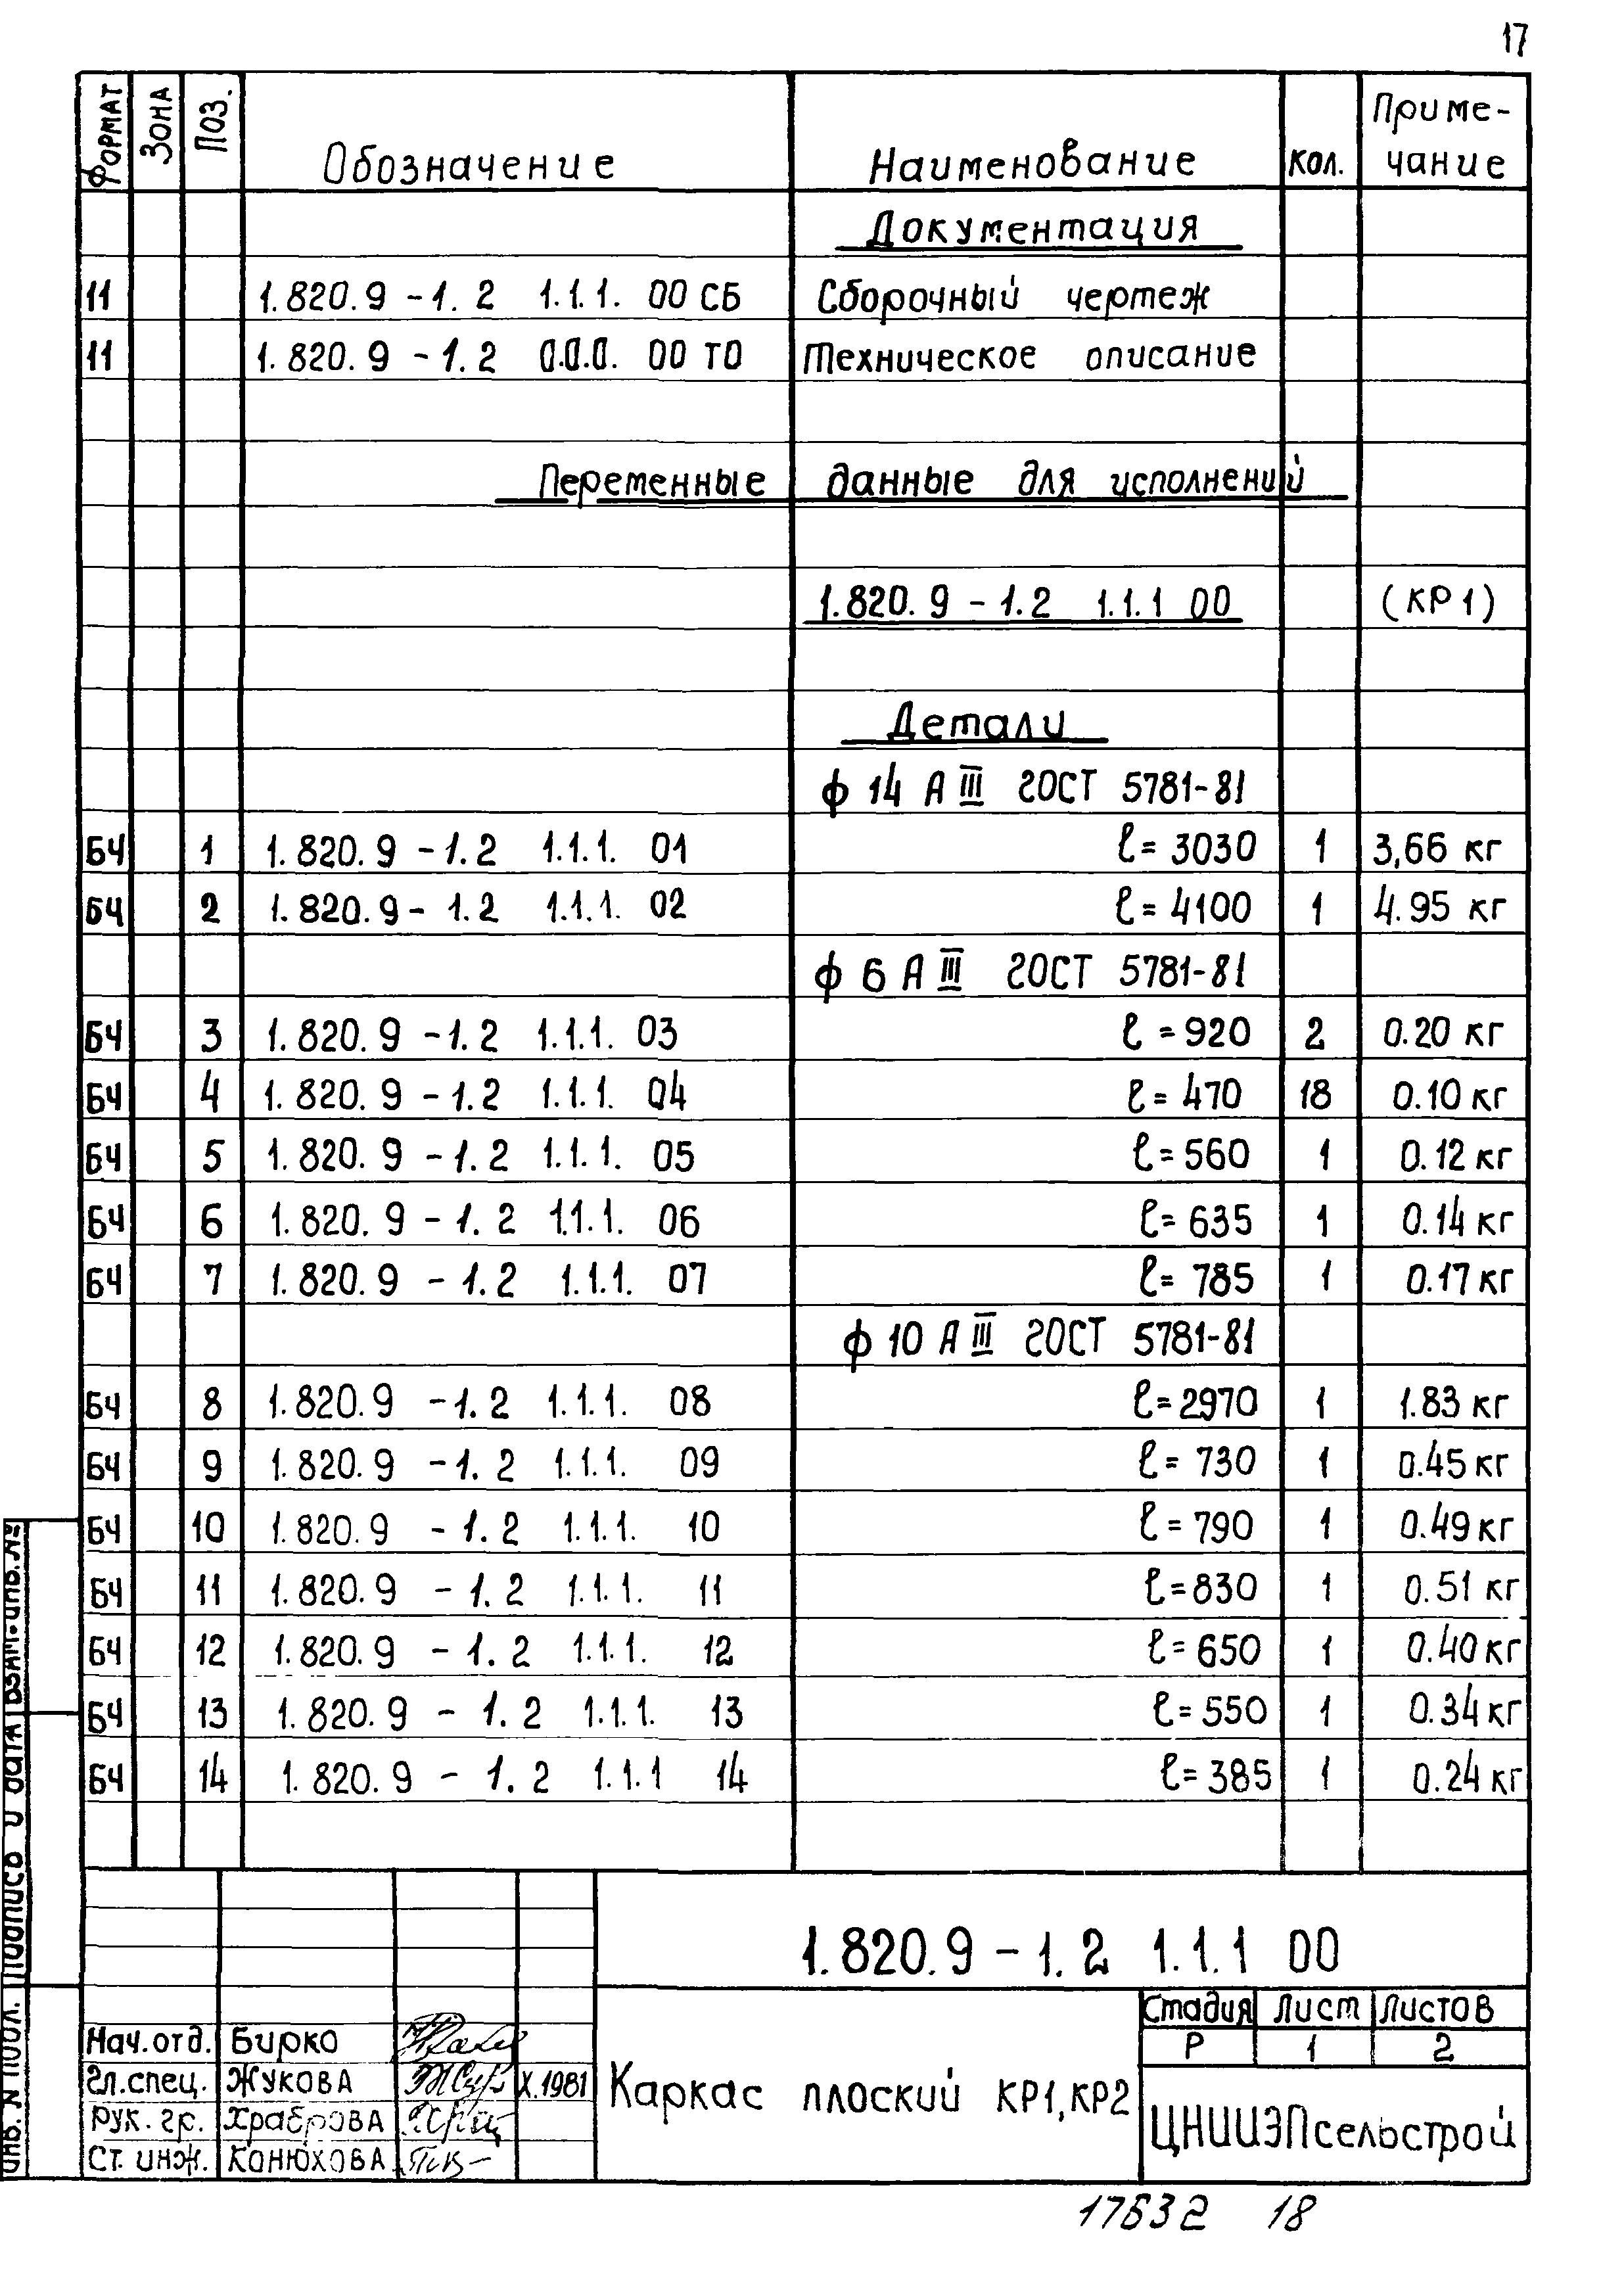 17
Формат Зона Поз. Обозначение Наименование Кол. Приме-
чание
Документация
11 1.820.9 - 1.2 1.1.1. 00 СБ Сборочный чертеж
11 1.820.9 - 1.2 0.0.0. 00 ТО Техническое описание
Переменные данные для исполнений
1.820.9 - 1.2 1.1.1 00 (КР1)
Детали
ф 14 А III ГОСТ 5781-81
БЧ 1 1.820.9 - 1.2 1.1.1. 01 ℓ = 3030 1 3,66 кг
БЧ 2 1.820.9 - 1.2 1.1.1. 02 ℓ = 4100 1 4.95 кг
ф 6 А III ГОСТ 5781-81
БЧ 3 1.820.9 - 1.2 1.1.1. 03 ℓ = 920 2 0.20 кг
БЧ 4 1.820.9 - 1.2 1.1.1. 04 ℓ = 470 18 0.10 кг
БЧ 5 1.820.9 - 1.2 1.1.1. 05 ℓ = 560 1 0.12 кг
БЧ 6 1.820.9 - 1.2 1.1.1. 06 ℓ = 635 1 0.14 кг
БЧ 7 1.820.9 - 1.2 1.1.1. 07 ℓ = 785 1 0.17 кг
ф 10 А III ГОСТ 5781-81
БЧ 8 1.820.9 - 1.2 1.1.1. 08 ℓ = 2970 1 1.83 кг
БЧ 9 1.820.9 - 1.2 1.1.1. 09 ℓ = 730 1 0.45 кг
БЧ 10 1.820.9 - 1.2 1.1.1. 10 ℓ = 790 1 0.49 кг
БЧ 11 1.820.9 - 1.2 1.1.1. 11 ℓ = 830 1 0.51 кг
БЧ 12 1.820.9 - 1.2 1.1.1. 12 ℓ = 650 1 0.40 кг
БЧ 13 1.820.9 - 1.2 1.1.1. 13 ℓ = 550 1 0.34 кг
БЧ 14 1.820.9 - 1.2 1.1.1 14 ℓ = 385 1 0.24 кг
Инв. N подл. Подпись и дата Взам. инв. №
1.820.9 - 1.2 1.1.1 00
Нач. отд. Бирко
Гл. спец. Жукова X.1981
Рук. гр. Храброва
Ст. инж. Конюхова
Каркас плоский КР1, КР2
Стадия Лист Листов
Р 1 2
ЦНИИЭПсельстрой
17632 18